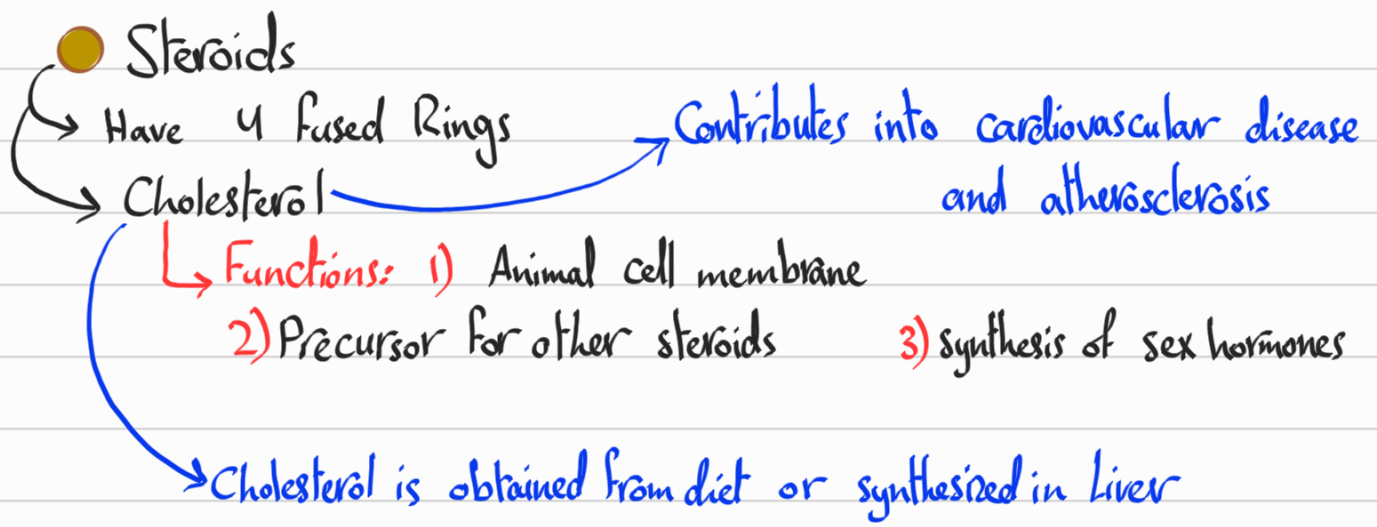 Steroids
Have 4 fused Rings
Contributes into cardiovascular disease
Cholesterol
and atherosclerosis
Functions: 1) Animal cell membrane
2) Precursor for other steroids 3) synthesis of sex hormones
Cholesterol is obtained from diet or synthesized in Liver